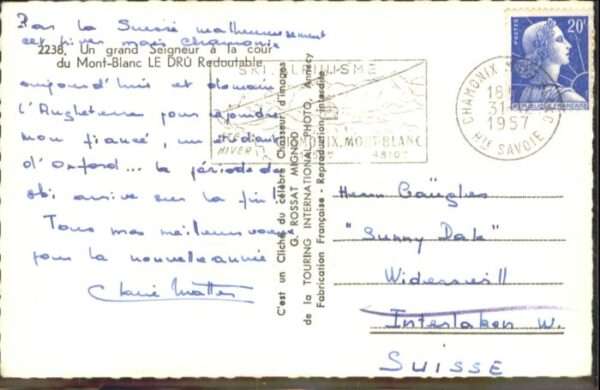 Pas la Suisse malheureusement
cet hiver mais Chamonix
2238. Un grand Seigneur à la cour
du Mont-Blanc LE DRÛ Redoutable.
aujourd'hui et demain
l'Angleterre pour rejoindre
mon fiancé, un étudiant
d'Oxford... la période de
ski arrive sur la fin!
Tous mes meilleurs vœux
pour la nouvelle année
C'est un Cliché du célèbre Chasseur d'images
G. ROSSAT MIGNOD
de la TOURING INTERNATIONAL PHOTO, Annecy
Fabrication Française - Reproduction interdite
SKI
CHAMONIX, MONT-BLANC
HIVER
POSTES
20F
RÉPUBLIQUE FRANÇAISE
CHAMONIX
18
31
1957
Hte SAVOIE
Herrn
"Sunny Dale"
Interlaken W.
SUISSE